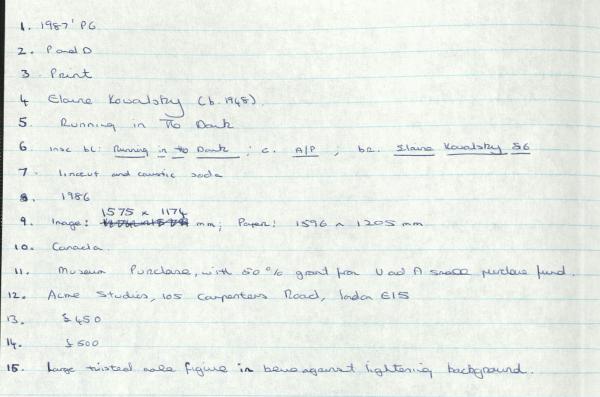 1. 1987' PG
2. P and D
3. Print
4 Elaine Kowalsky (b. 1948).
5. Running in The Dark
6 insc bl: Running in the Dark ; c. A/P ; br. Elaine Kowalsky 86
7. linocut and caustic soda
8. 1986
1575 x 1174
9. Image: mm; Paper: 1596 x 1205 mm
10. Canada.
11. Museum Purchase, with 50% grant from V and A small purchase fund.
12. Acme Studios, 105 Carpenters Road, London E15
13. £450
14. £500
15. Large twisted male figure in against lightening background.